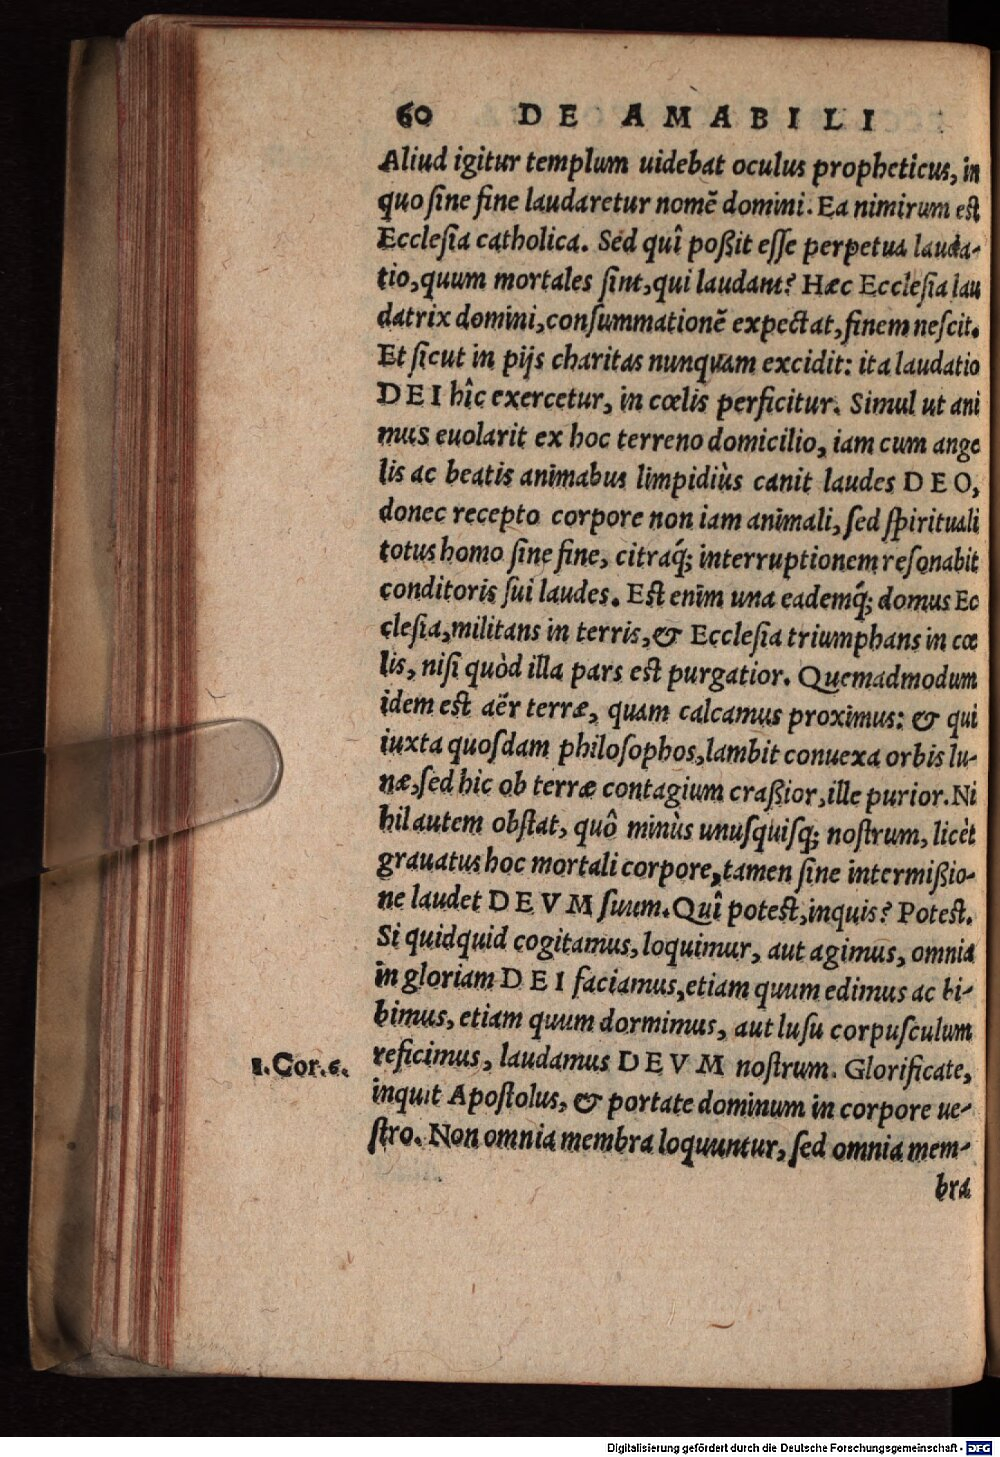 60 DE AMABILI
Aliud igitur templum uidebat oculus propheticus, in
quo ſine fine laudaretur nomē domini. Ea nimirum eſt
Eccleſia catholica. Sed quî poßit eſſe perpetua lauda-
tio, quum mortales ſint, qui laudant? Hæc Eccleſia lau
datrix domini, conſummationē expectat, finem neſcit.
Et ſicut in pijs charitas nunquam excidit: ita laudatio
DEI hîc exercetur, in cœlis perficitur. Simul ut ani
mus euolarit ex hoc terreno domicilio, iam cum ange
lis ac beatis animabus limpidiùs canit laudes DEO,
donec recepto corpore non iam animali, ſed ſpirituali
totus homo ſine fine, citraq́; interruptionem reſonabit
conditoris ſui laudes. Eſt enim una eademq́; domus Ec
cleſia, militans in terris, & Eccleſia triumphans in cœ
lis, niſi quòd illa pars eſt purgatior. Quemadmodum
idem eſt aër terræ, quam calcamus proximus: & qui
iuxta quoſdam philoſophos, lambit conuexa orbis lu-
næ, ſed hic ob terræ contagium craßior, ille purior. Ni
hil autem obſtat, quô minùs unuſquiſq; noſtrum, licèt
grauatus hoc mortali corpore, tamen ſine intermißio-
ne laudet DEVM ſuum. Quî poteſt, inquis? Poteſt.
Si quidquid cogitamus, loquimur, aut agimus, omnia
in gloriam DEI faciamus, etiam quum edimus ac bi-
bimus, etiam quum dormimus, aut luſu corpuſculum
reficimus, laudamus DEVM noſtrum. Glorificate,
1. Cor. 6.
inquit Apoſtolus, & portate dominum in corpore ue-
ſtro. Non omnia membra loquuntur, ſed omnia mem-
bra
Digitalisierung gefördert durch die Deutsche Forschungsgemeinschaft - DFG